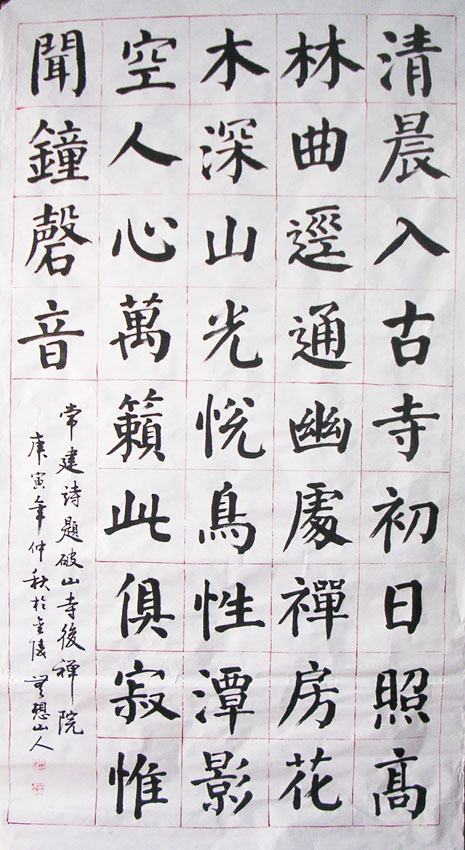 清晨入古寺初日照高
林曲逕通幽處禪房花
木深山光悅鳥性潭影
空人心萬籟此俱寂惟
聞鐘磬音
常建詩題破山寺後禪院
庚寅年仲秋於金陵無想山人